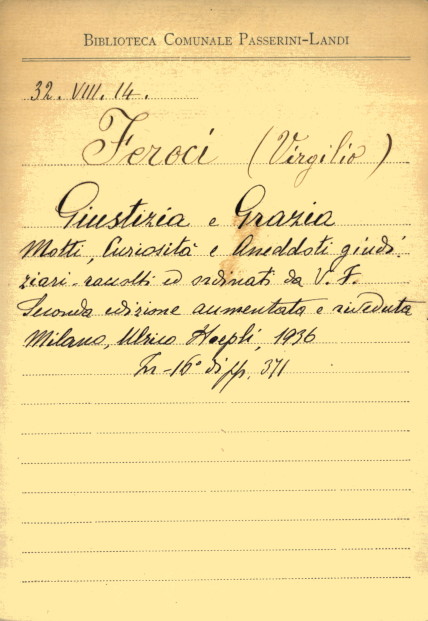 BIBLIOTECA COMUNALE PASSERINI-LANDI
32. VIII. 14.
Feroci (Virgilio)
Giustizia e Grazia
Motti, Curiosità e Aneddoti giudi
ziari raccolti ed ordinati da V. F.
Seconda edizione aumentata e riveduta
Milano, Ulrico Hoepli, 1936
In-16° di pp. 371